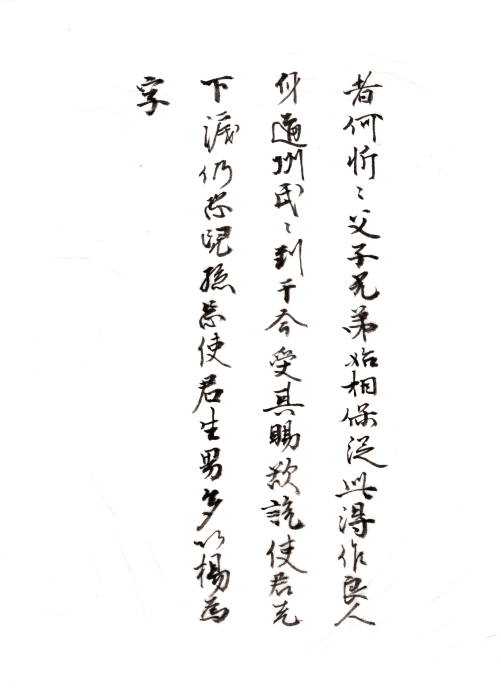 者何忻〻父子兄弟始相保從此得作良人
身道州民〻到于今受其賜欲說使君先
下淚仍恐兒孫忘使君生男多以楊為
字